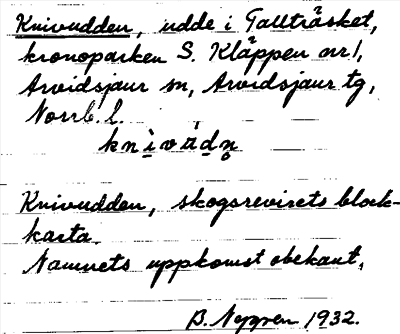 Knivudden, udde i Tallträsket,
kronoparken S. Kläppen nr 1,
Arvidsjaur sn, Arvidsjaur tg,
Norrb. l.
Knivudden, skogsrevirets block-
karta.
Namnets uppkomst obekant.
B. Nygren 1932.